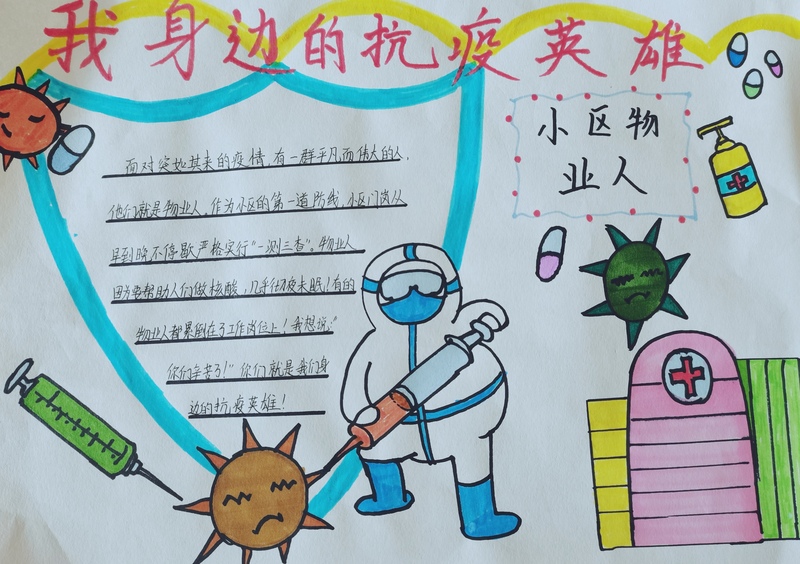 我身边的抗疫英雄
小区物
业人
面对突如其来的疫情,有一群平凡而伟大的人,
他们就是物业人,作为小区的第一道防线,小区门岗从
早到晚不停歇严格实行“一测三查”。物业人
因为要帮助人们做核酸,几乎彻夜未眠!有的
物业人都累倒在了工作岗位上!我想说:“
你们辛苦了!”你们就是我们身
边的抗疫英雄!